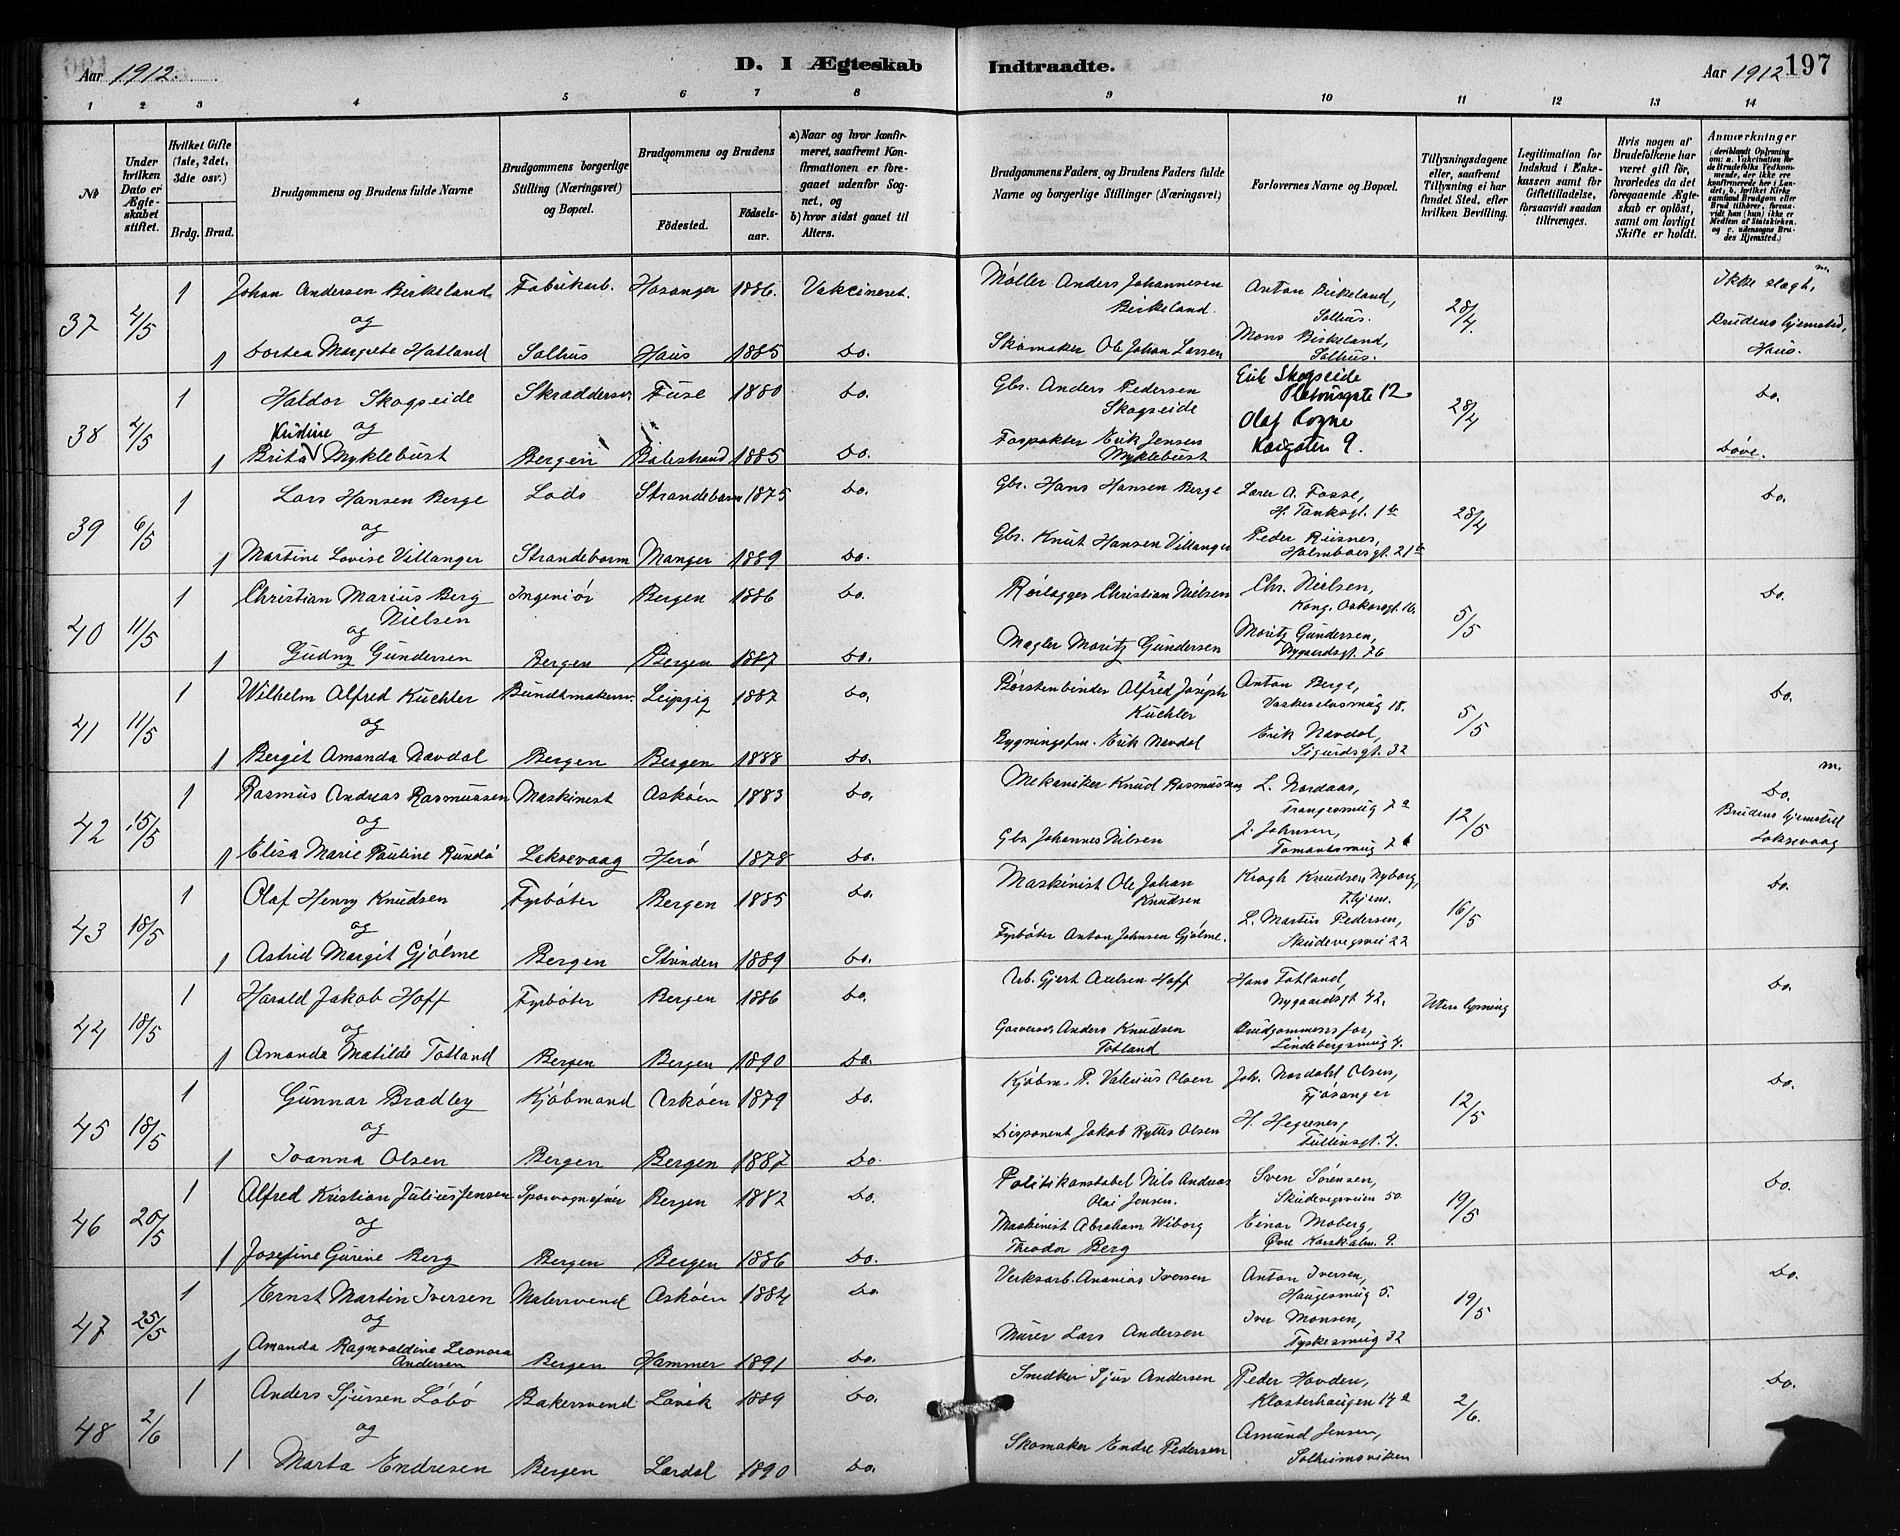 Aar 1912.
D. I Ægteskab Indtraadte.
Aar 1912 197
1 2 3 4 5 6 7 8 9 10 11 12 13 14
No
Under hvilken Dato er Ægteskabet stiftet.
Hvilket Gifte (1ste, 2det, 3die osv.)
Brdg. Brud.
Brudgommens og Brudens fulde Navne
Brudgommens borgerlige Stilling (Næringsvei) og Bopæl.
Brudgommens og Brudens
Fødested. Fødselsaar.
a) Naar og hvor konfirmeret, saafremt Konfirmationen er foregaaet udenfor Sognet, og
b) hvor sidst gaaet til Alters.
Brudgommens Faders, og Brudens Faders fulde Navne og borgerlige Stillinger (Næringsvei)
Forlovernes Navne og Bopæl.
Tillysningsdagene eller, saafremt Tillysning ei har fundet Sted, efter hvilken Bevilling.
Legitimation for Indskud i Enkekassen samt for Giftetilladelse, forsaavidt saadan tiltrænges.
Hvis nogen af Brudefolkene har været gift før, hvorledes da det foregaaende Ægteskab er opløst, samt om lovligt Skifte er holdt.
Anmærkninger
37 4/5 1 Johan Andersen Birkeland Fabrikarb. Hosanger 1886. Vakcineret. Møller Anders Johannesen Birkeland. Anton Birkeland, Salhus. 28/4 Ikke slægt,
og
1 Dortea Margrete Hatland Salhus Haus 1885 Do. Skomaker Ole Johan Larsen Mons Birkeland, Salhus. Brudens hjemsted, Haus.
38 4/5 1 Haldor Skogseide Skräddersv. Fuse 1880 Do. Gbr. Anders Pedersen Skogseide Erik Skogseide 12 28/4 Do.
Kristine og
1 Brita Myklebust Bergen Balestrand 1885 Do. Erik Jensen Myklebust Olaf Rogne 9. Døve.
39 6/5 1 Lars Hansen Berge Lods Strandebarm 1875 Do. Gbr. Hans Hansen Berge Larer A. Fosse, H. Tanksgt. 1 28/4 Do.
og
1 Martine Lovise Villanger Strandebarm Manger 1889 Do. Gbr. Knut Hansen Villanger Peder Riisnes, Holmboesgt. 21
40 11/5 1 Christian Marius Berg Nielsen Ingeniör Bergen 1886 Do. Rörlægger Christian Nielsen Chr. Nielsen, Kong. Oskarsgt. 16. 5/5 Do.
og
1 Gudny Gundersen Bergen Bergen 1887 Do. Mægler Moritz Gundersen Moritz Gundersen, Nygaardsgt. 76
41 11/5 1 Wilhelm Alfred Küchler Bundtmakersv. Leipzig 1887 Do. Börstenbinder Alfred Joseph Küchler Anton Berge, 18. 5/5 Do.
og
1 Bergit Amanda Navdal Bergen Bergen 1888 Do. Bygningsfm. Erik Navdal Erik Navdal, Sigurdsgt. 32
42 15/5 1 Rasmus Andreas Rasmussen Maskinest Askøen 1883 Do. Mekaniker Knud Rasmussen L. Nordaas, 12/5 Do.
og
1 Elisa Marie Pauline Rundö Laksevaag Herø 1878 Do. Gbr. Johannes Nilsen J. Johnsen, Brudens hjemsted Laksevaag
43 18/5 1 Olaf Henry Knudsen Fyrböter Bergen 1885 Do. Maskinist Ole Johan Knudsen Krogh Knudsen Nyborg, 16/5 Do.
og
1 Astrid Margit Gjölme Bergen Strinden 1889 Do. Fyrböter Anton Johnsen Gjölme. L. Martin Pedersen, 22
44 18/5 1 Harald Jakob Hoff Fyrböter Bergen 1886 Do. Arb. Gjert Axelsen Hoff Hans Totland, Nygaardsgt 42. Uten lysning Do.
og
1 Amanda Matilde Totland Bergen Bergen 1890 Do. Garversv. Anders Knudsen Totland Brudgommens far, Lindebergsmug 4.
45 18/5 1 Gunnar Bradley Kjöbmand Askøen 1879 Do. Kjöbm. P. Valerius Olsen Joh. Nordahl Olsen, Fjösanger 12/5 Do.
og
1 Joanna Olsen Bergen Bergen 1887 Do. Disponent Jakob Rytter Olsen H. Hegrenes, Tullinsgt. 4.
46 20/5 1 Alfred Kristian Julius Jensen Sporvognsförer Bergen 1882 Do. Politikonstabel Nils Andreas Olai Jensen. Sven Sörensen, Skudevigsveien 50. 19/5 Do.
og
1 Josefine Gurine Berg Bergen Bergen 1886 Do. Maskinist Abraham Wiborg Theodor Berg Einar Moberg, Øvre Korskalm. 9.
47 25/5 1 Ernst Martin Iversen Malersvend Askøen 1884 Do. Verksarb. Ananias Iversen Anton Iversen, Haugesmug 5. 19/5 Do.
og
1 Amanda Ragnvaldine Leonora Andersen Bergen Hammer 1891 Do. Murer Lars Andersen Iver Monsen, Tyskesmug 32
48 2/6 1 Anders Sjursen Löbö Bakersvend Lavik 1889 Do. Snedker Sjur Andersen Peder Hovden, Klosterhaugen 14 a 2/6. Do.
og
1 Marta Endresen Bergen Lærdal 1890 Do. Skomaker Endre Pedersen Amund Jensen, Solheimsviken